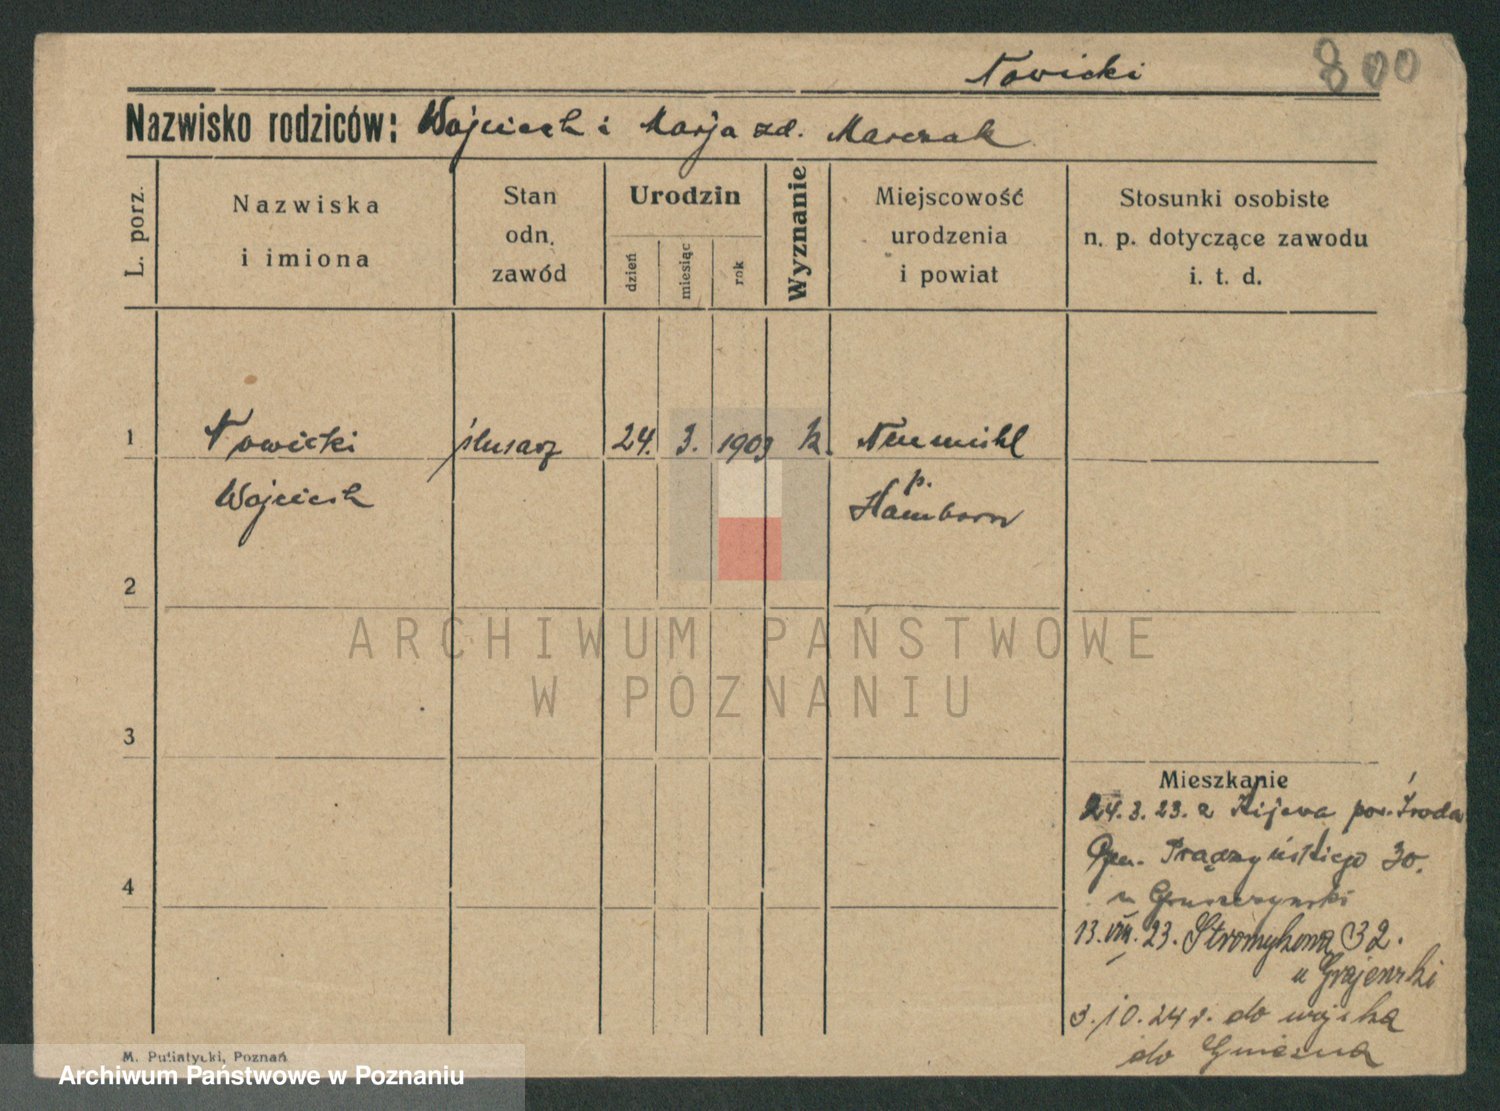 Nowicki
800
Nazwisko rodziców: Wojciech i Marja zd. Marczak
L. porz.
Nazwiska
i imiona
Stan
odn.
zawód
Urodzin
dzień
miesiąc
rok
Wyznanie
Miejscowość
urodzenia
i powiat
Stosunki osobiste
n. p. dotyczące zawodu
i. t. d.
1
Nowicki
ślusarz
24.
3.
1903
k.
Neumühl
Wojciech
p.
Hamborn
2
ARCHIWUM PAŃSTWOWE
W POZNANIU
3
Mieszkanie
24.3.23. z Kijewa pow. Środa
Gen. Prądzyńskiego 30.
u Gruszczynski
4
13.VIII.23. Stromykona 32.
u Grajenski
3.10.24 r. do wojska
do Gniezna
M. Putiatycki, Poznań
Archiwum Państwowe w Poznaniu